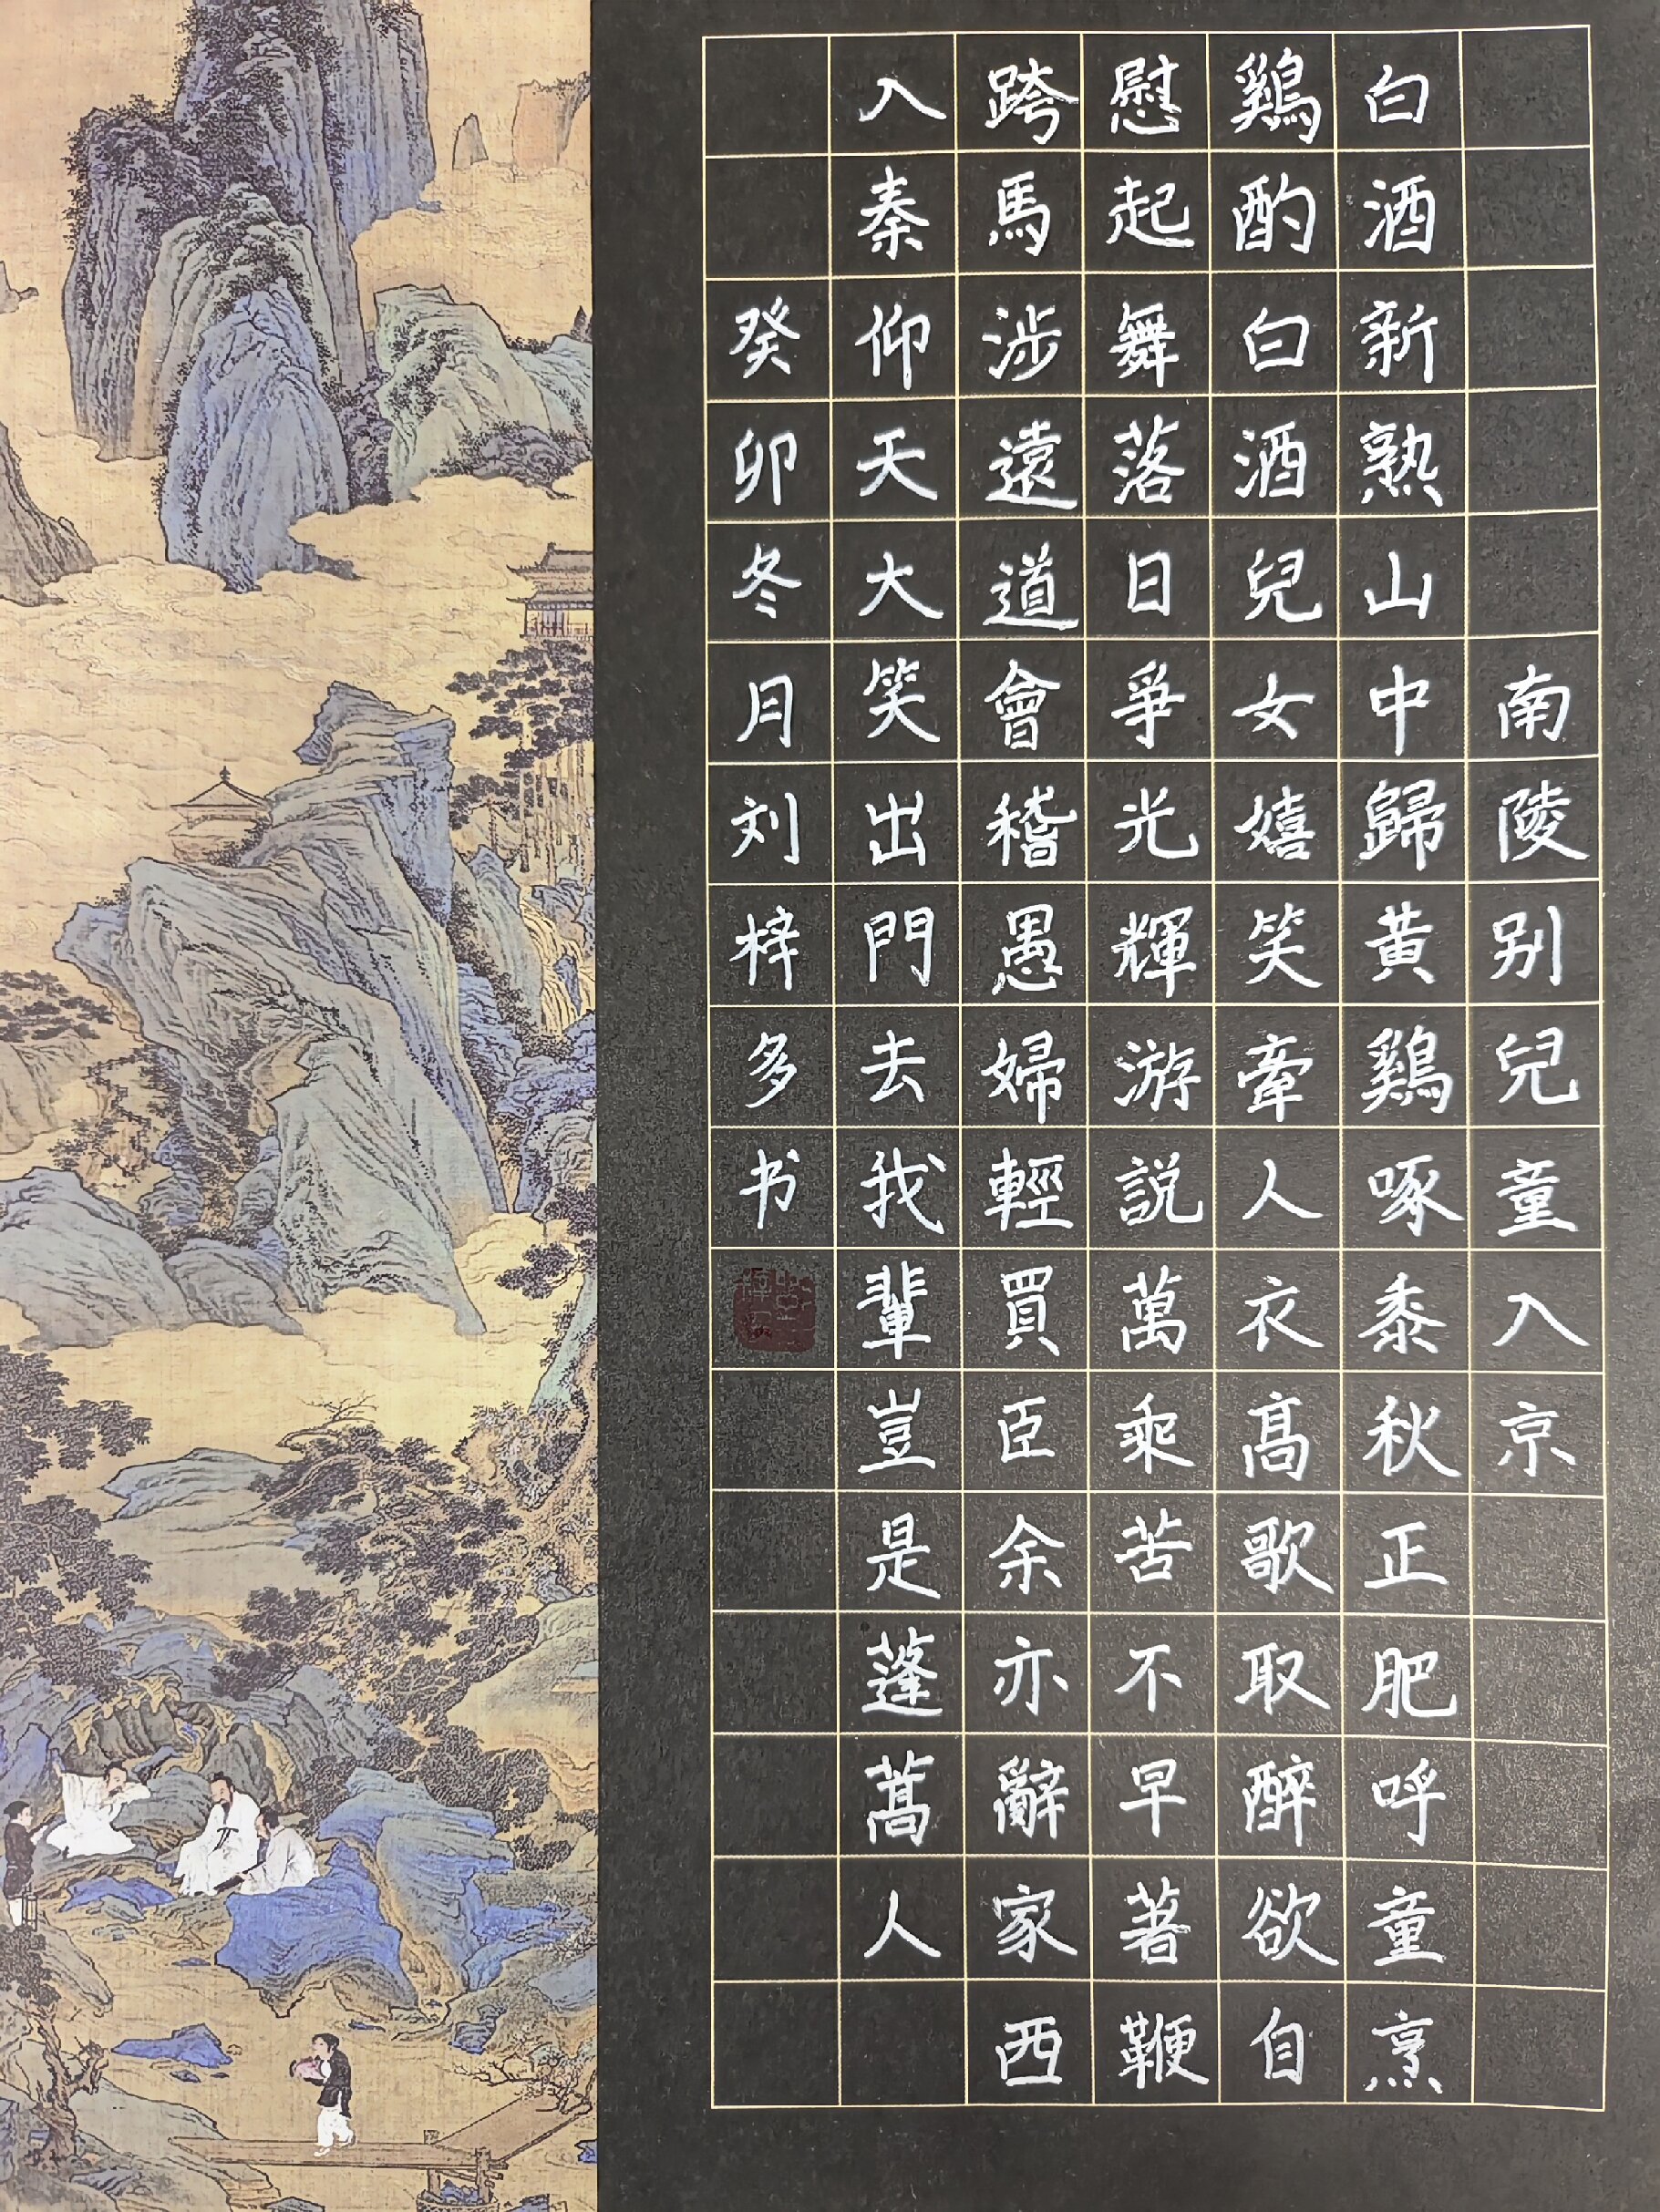 南陵别兒童入京
白酒新熟山中歸黃鷄啄黍秋正肥呼童烹
鷄酌白酒兒女嬉笑牽人衣高歌取醉欲自
慰起舞落日爭光輝游説萬乘苦不早著鞭
跨馬涉遠道會稽愚婦輕買臣余亦辭家西
入秦仰天大笑出門去我輩豈是蓬蒿人
癸卯冬月刘梓多书